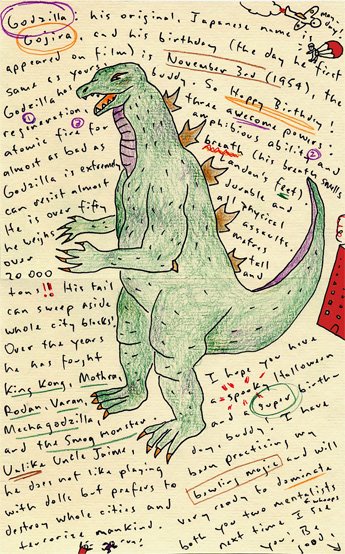 Godzilla: his original, Japanese name is
Gojira, and his birthday (the day he first
appeared on film) is November 3rd (1954) the
same as yours, buddy. So Happy Birthday!
Godzilla has three awesome powers:
regeneration, amphibious abilities and
① ② ③
atomic fire for breath (his breath smells
almost as bad as Landon's feet).
Godzilla is extremely durable and
can resist almost all physical
He is over fifty assaults.
he weighs meters tell
over and
20 000
tons!! His tail
can sweep aside
whole city blocks!
Over the years
he has fought
King Kong, Mothra,
Rodan, Varan,
Mechagodzilla,
and the Smog monster.
Unlike Uncle Jaime,
he does not like playing
with dolls but prefers to
destroy whole cities and
terrorize mankind.
I hope you have
a spooky Halloween
and super birth-
day, buddy! I have
been practicing my
bowling magic and will
very ready to dominate
both you two mentalists
next time I see
you! Be
good